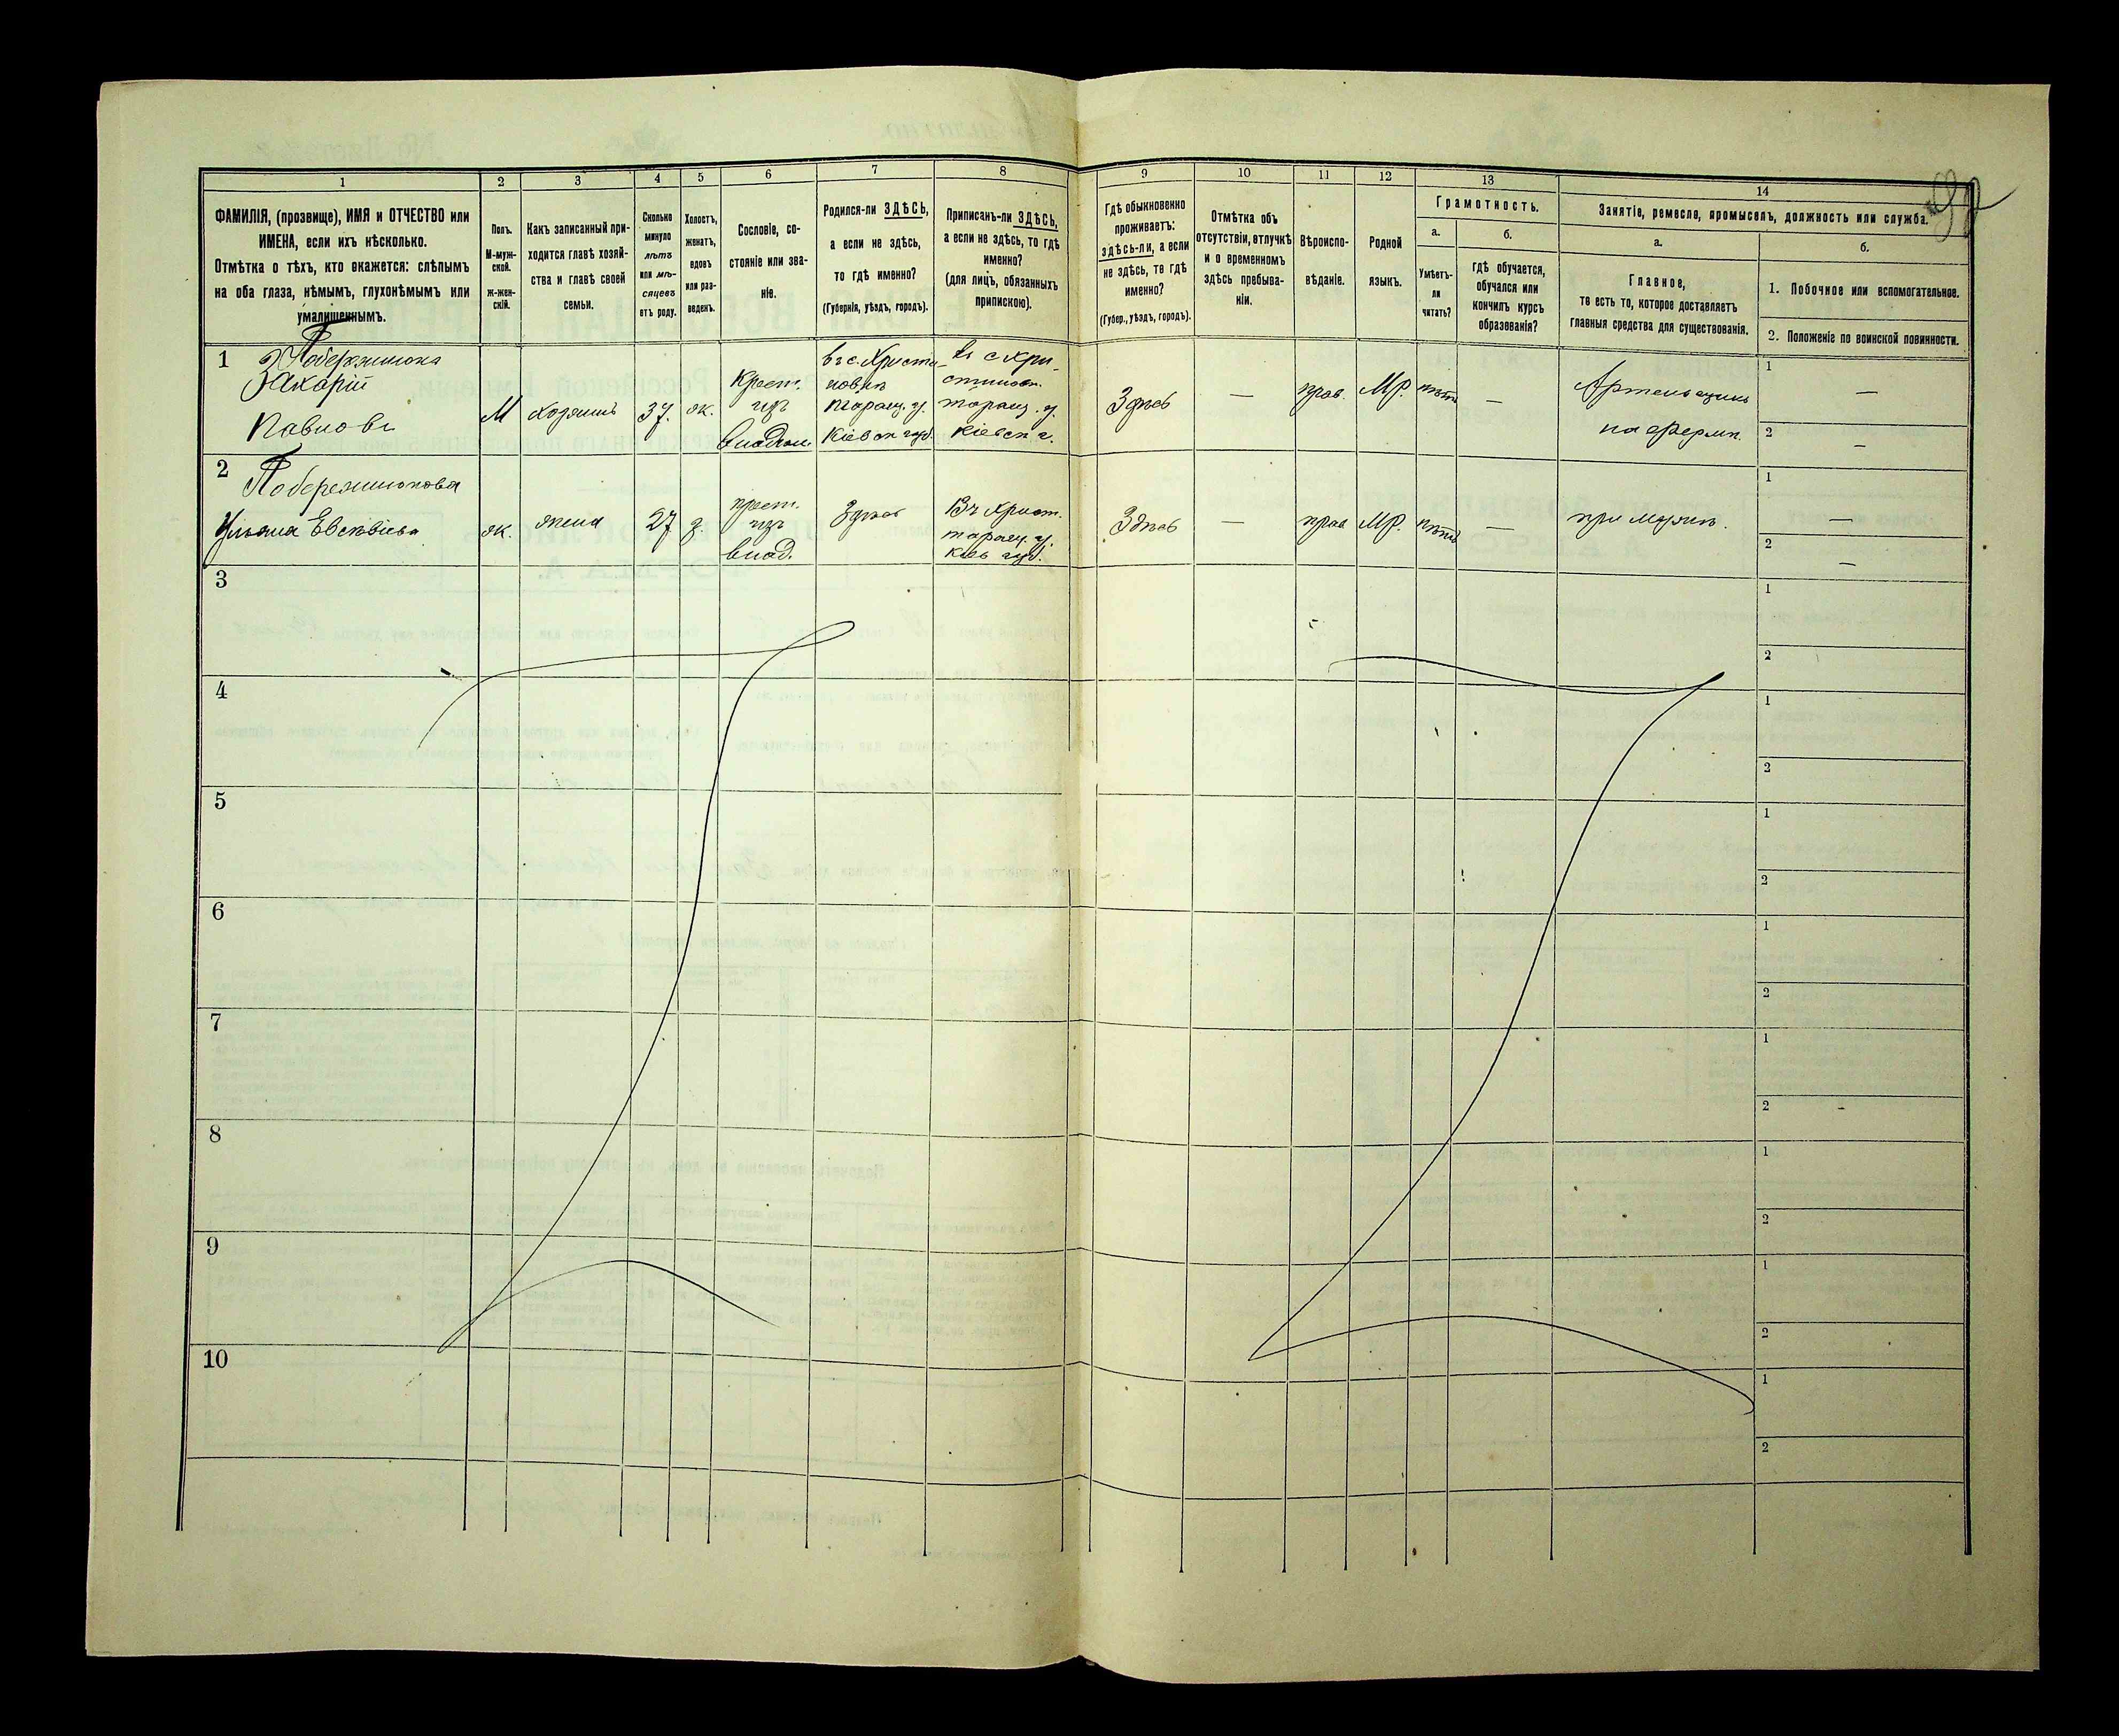 1 2 3 4 5 6 7 8 9 10 11 12 13 14
ФАМИЛІЯ, (прозвище), ИМЯ и ОТЧЕСТВО или
ИМЕНА, если ихъ нѣсколько.
Отмѣтка о тѣхъ, кто окажется: слѣпымъ
на оба глаза, нѣмымъ, глухонѣмымъ или
умалишеннымъ.
Полъ.
М-муж-
ской.
ж-жен-
скій.
Какъ записанный при-
ходится главѣ хозяй-
ства и главѣ своей
семьи.
Сколько
минуло
лѣтъ
или мѣ-
сяцевъ
отъ роду.
Холостъ,
женатъ,
вдовъ
или раз-
веденъ.
Сословіе, со-
стояніе или зва-
ніе.
Родился-ли ЗДѢСЬ,
а если не здѣсь,
то гдѣ именно?
(Губернія, уѣздъ, городъ).
Приписанъ-ли ЗДѢСЬ,
а если не здѣсь, то гдѣ
именно?
(для лицъ, обязанныхъ
припискою).
Гдѣ обыкновенно
проживаетъ:
здѣсь-ли, а если
не здѣсь, то гдѣ
именно?
(Губер., уѣздъ, городъ).
Отмѣтка объ
отсутствіи, отлучкѣ
и о временномъ
здѣсь пребыва-
ніи.
Вѣроиспо-
вѣданіе.
Родной
языкъ.
Грамотность.
а.
Умѣетъ-
ли
читать?
б.
гдѣ обучается,
обучался или
кончилъ курсъ
образованія?
Занятіе, ремесло, промыселъ, должность или служба.
а.
Главное,
то есть то, которое доставляетъ
главныя средства для существованія.
б.
1. Побочное или вспомогательное.
2. Положеніе по воинской повинности.
1
Захарій
Павловъ
М
хозяинъ
37.
ж.
крест.
изъ
владѣл.
въ с. Христи-
новкѣ
таращ. у.
Кіевск губ.
въ с Хри-
стинов.
таращ. у.
Кіевск г.
Здѣсь
—
прав.
МР.
нѣтъ
—
Артельщикъ
на фермѣ.
1
—
2
—
2
Побережнюкова
Ульяна
ж.
жена
27
з.
крест.
изъ
влад.
Здѣсь
Въ Христ.
таращ. у.
Кіев губ.
Здѣсь
—
прав
МР.
нѣтъ
—
при мужѣ.
1
—
2
—
3
1
2
4
1
2
5
1
2
6
1
2
7
1
2
8
1
2
9
1
2
10
1
2